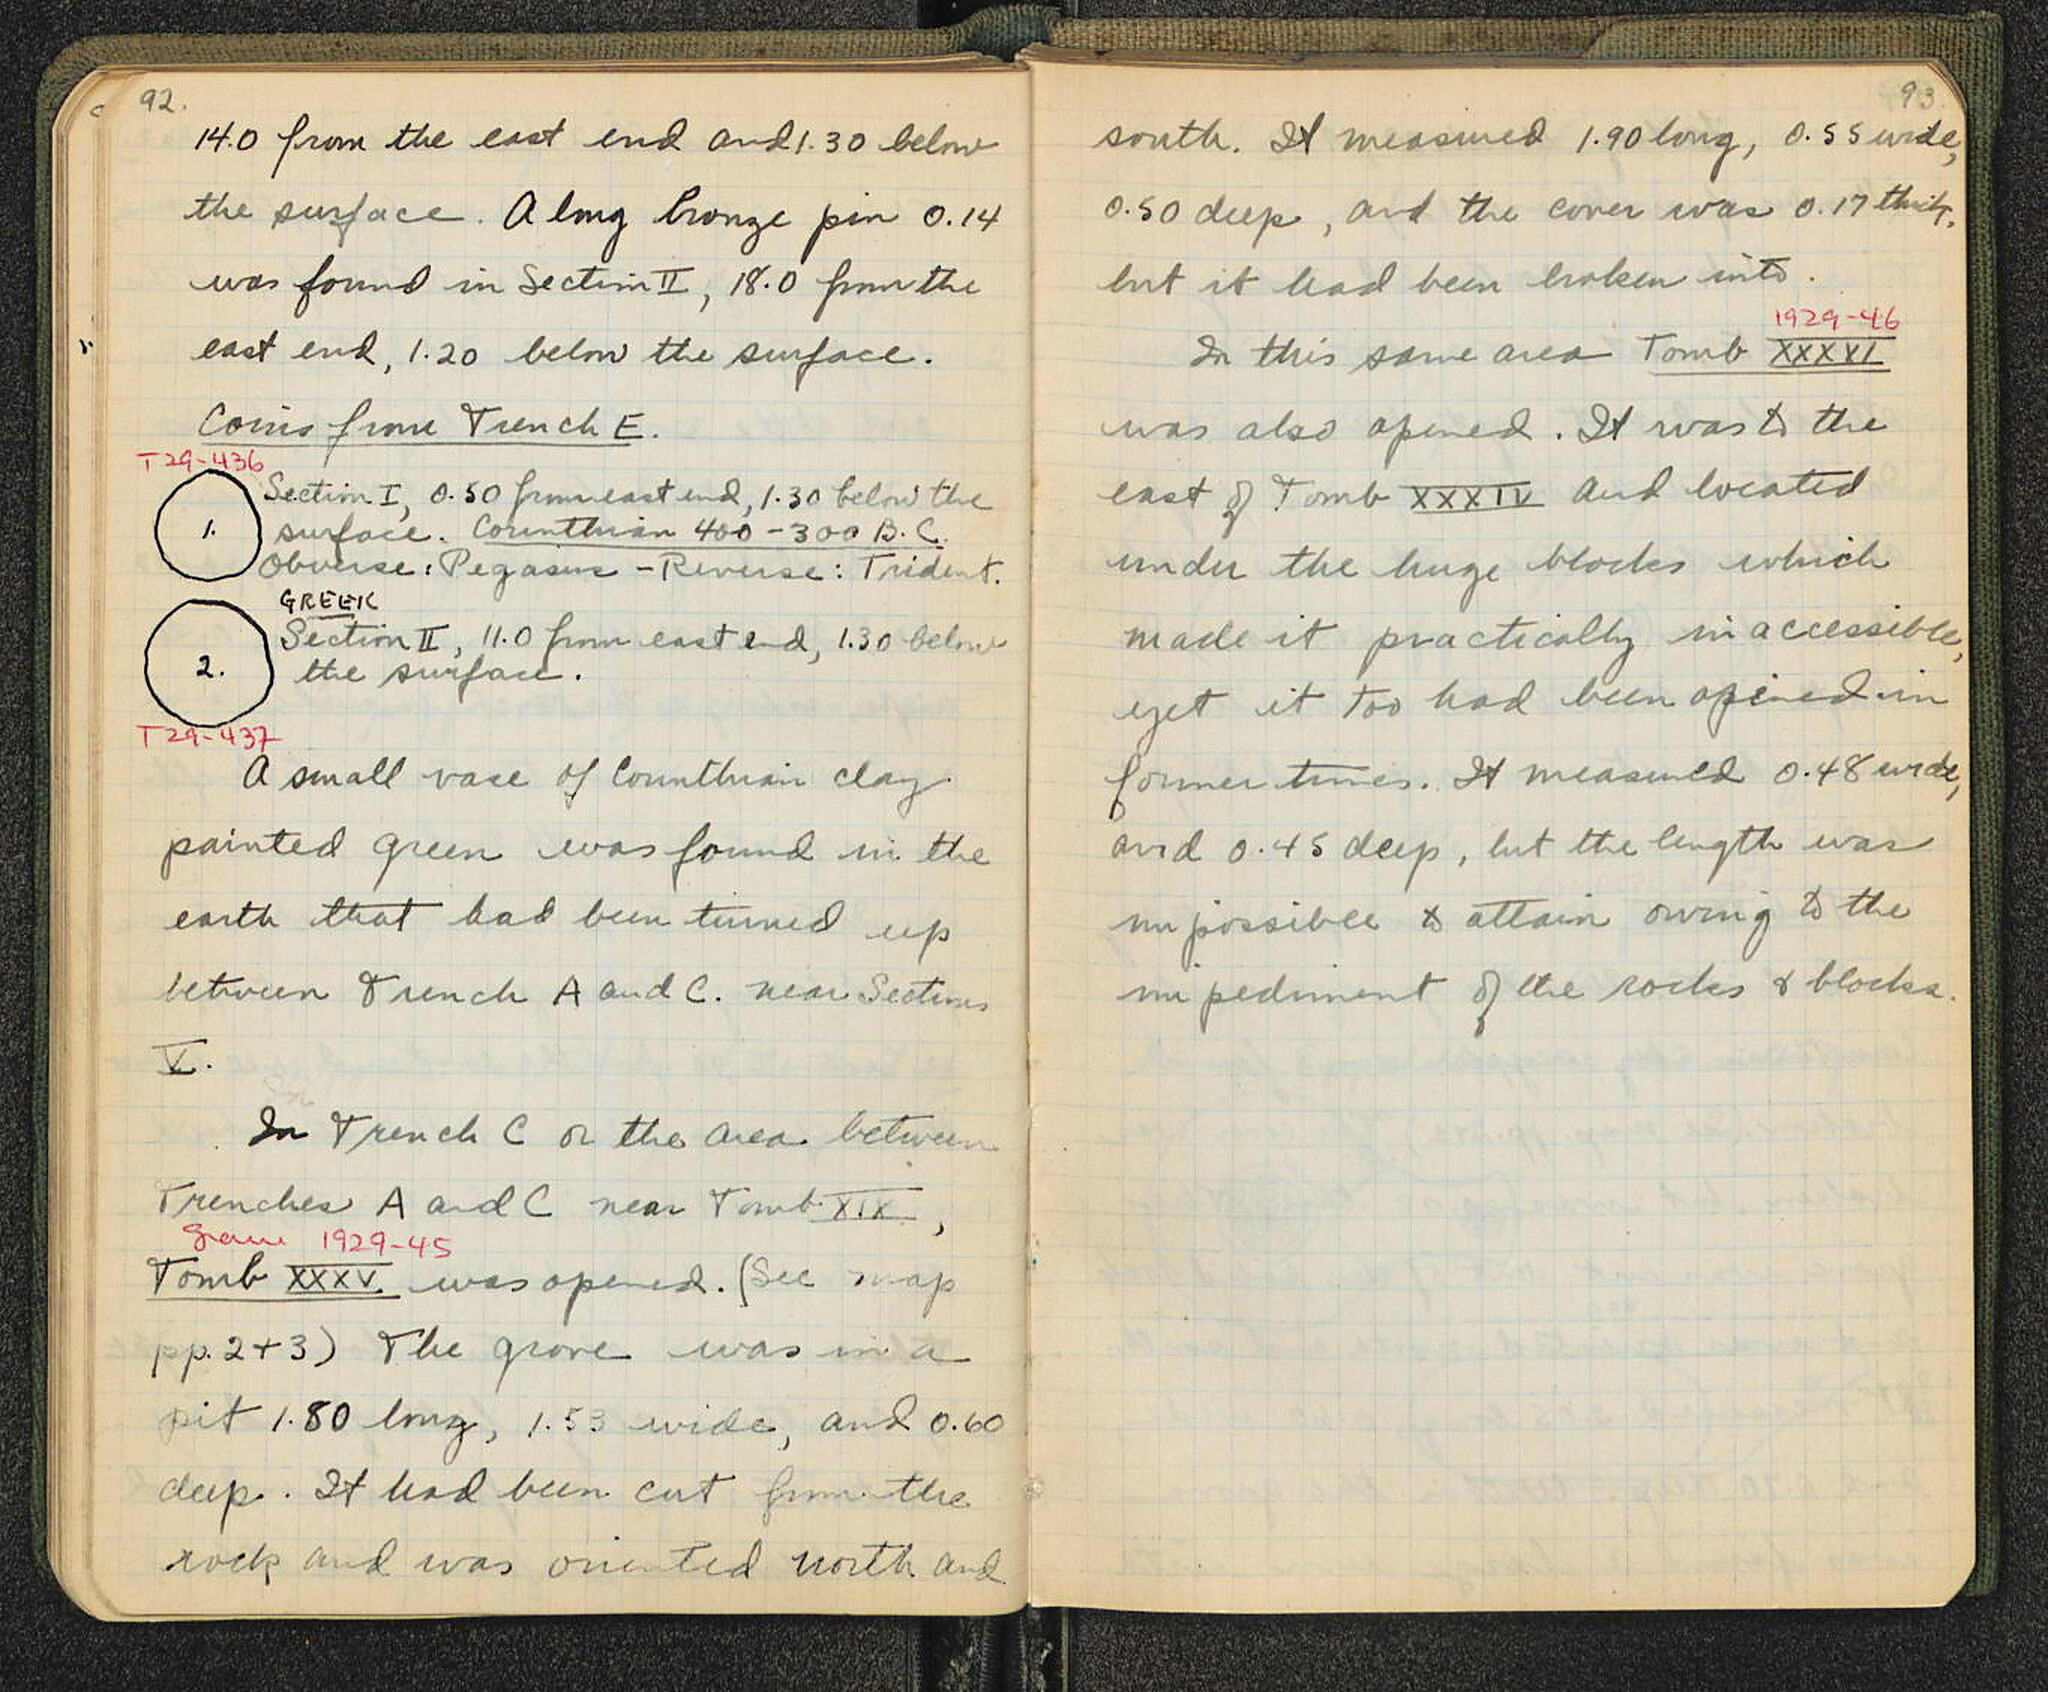 92.
14.0 from the east end and 1.30 below
the surface. A long bronze pin 0.14
was found in Section II, 18.0 from the
east end, 1.20 below the surface.
Coins from Trench E.
T 29-436
1.
Section I, 0.50 from east end, 1.30 below the
surface. Corinthian 400-300 B.C.
Obverse: Pegasus - Reverse: Trident.
GREEK
2.
Section II, 11.0 from east end, 1.30 below
the surface.
T 29-437
A small vase of Corinthian clay
painted green was found in the
earth that had been turned up
between Trench A and C. near Sections
V.
In Trench C or the area between
Trenches A and C near Tomb XIX,
Grave 1929-45
Tomb XXXV was opened. (See map
pp. 2+3) The grave was in a
pit 1.80 long, 1.53 wide, and 0.60
deep. It had been cut from the
rock and was oriented north and
93.
south. It measured 1.90 long, 0.55 wide,
0.50 deep, and the cover was 0.17 thick.
but it had been broken into.
1929-46
In this same area Tomb XXXVI
was also opened. It was to the
east of Tomb XXXIV and located
under the huge blocks which
made it practically inaccessible,
yet it too had been opened in
former times. It measured 0.48 wide,
and 0.45 deep, but the length was
impossible to attain owing to the
impediment of the rocks & blocks.